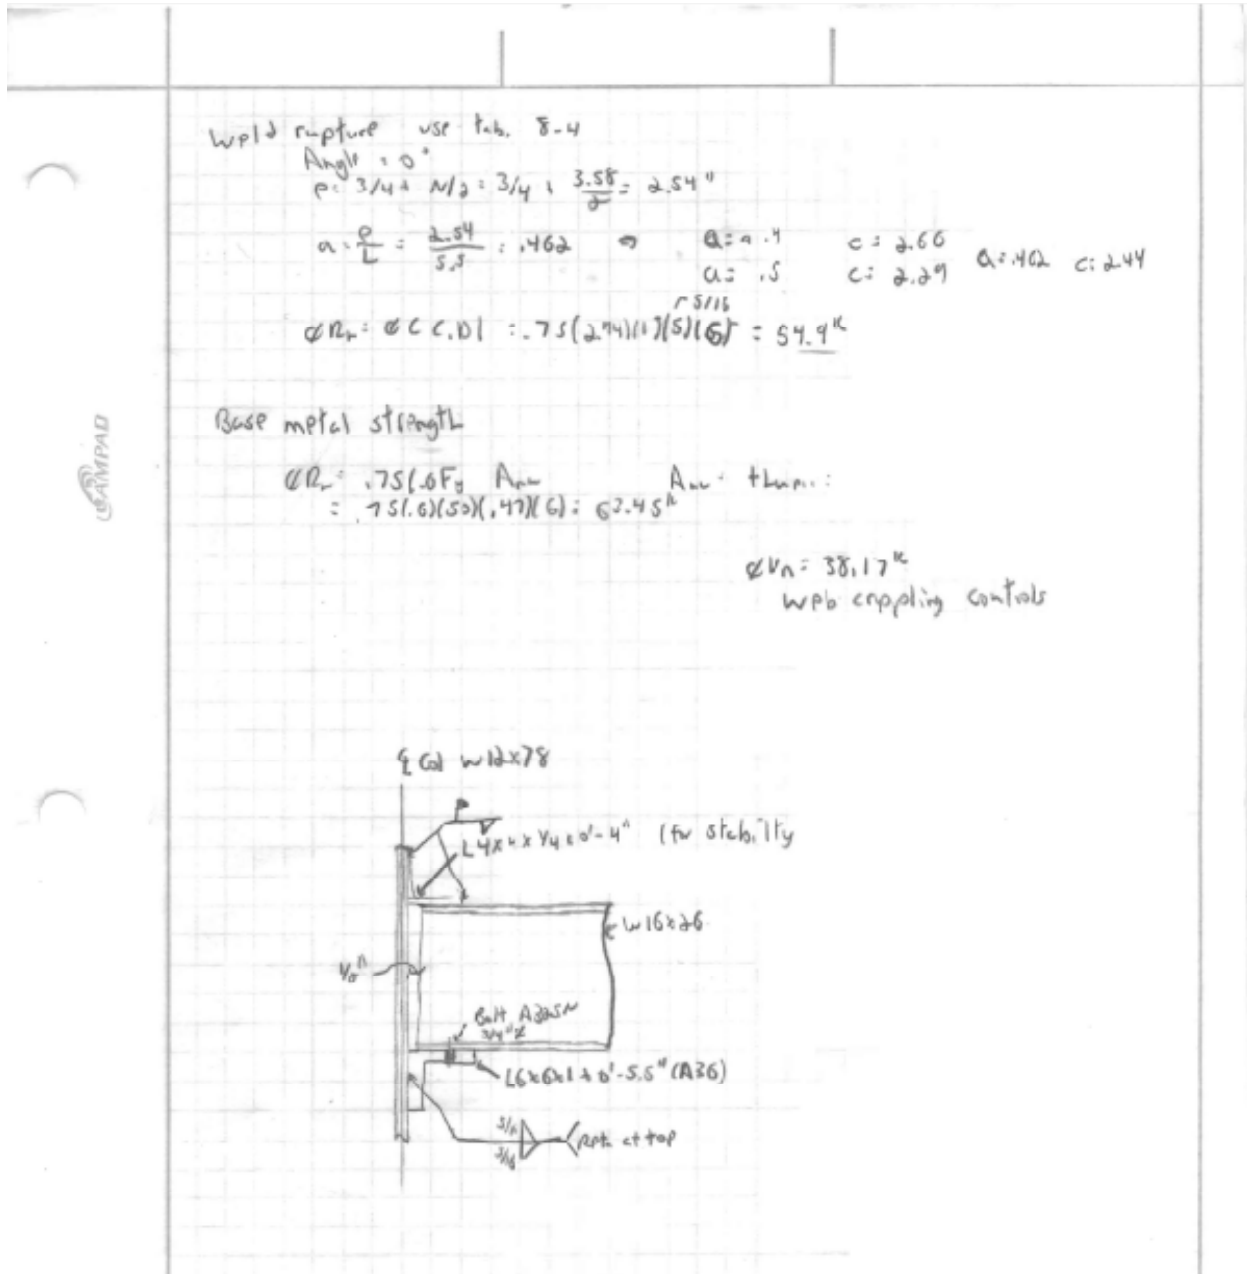 Weld rupture use tab. 8-4
Angle = 0°
e = 3/4 + N/2 = 3/4 + 3.58/2 = 2.54"
a = e/L = 2.54/5.5 = .462 a = .4 c = 2.66
a = .5 c = 2.29 a = .462 c = 2.44
5/16
ϕRn = ϕCC1Dl = .75(2.44)(1)(5)(6) = 54.9k
Base metal strength
ϕRn = .75(.6Fy Anv Anv =
= .75(.6)(50)(.47)(6) = 63.45k
ϕVn = 38.17k
web crippling controls
AMPAD
℄ Col W12x78
L4x4x1/4x0'-4" (for stability
W16x26
Bolt A325N
3/4"
L6x6x1x0'-5.5" (A36)
at top